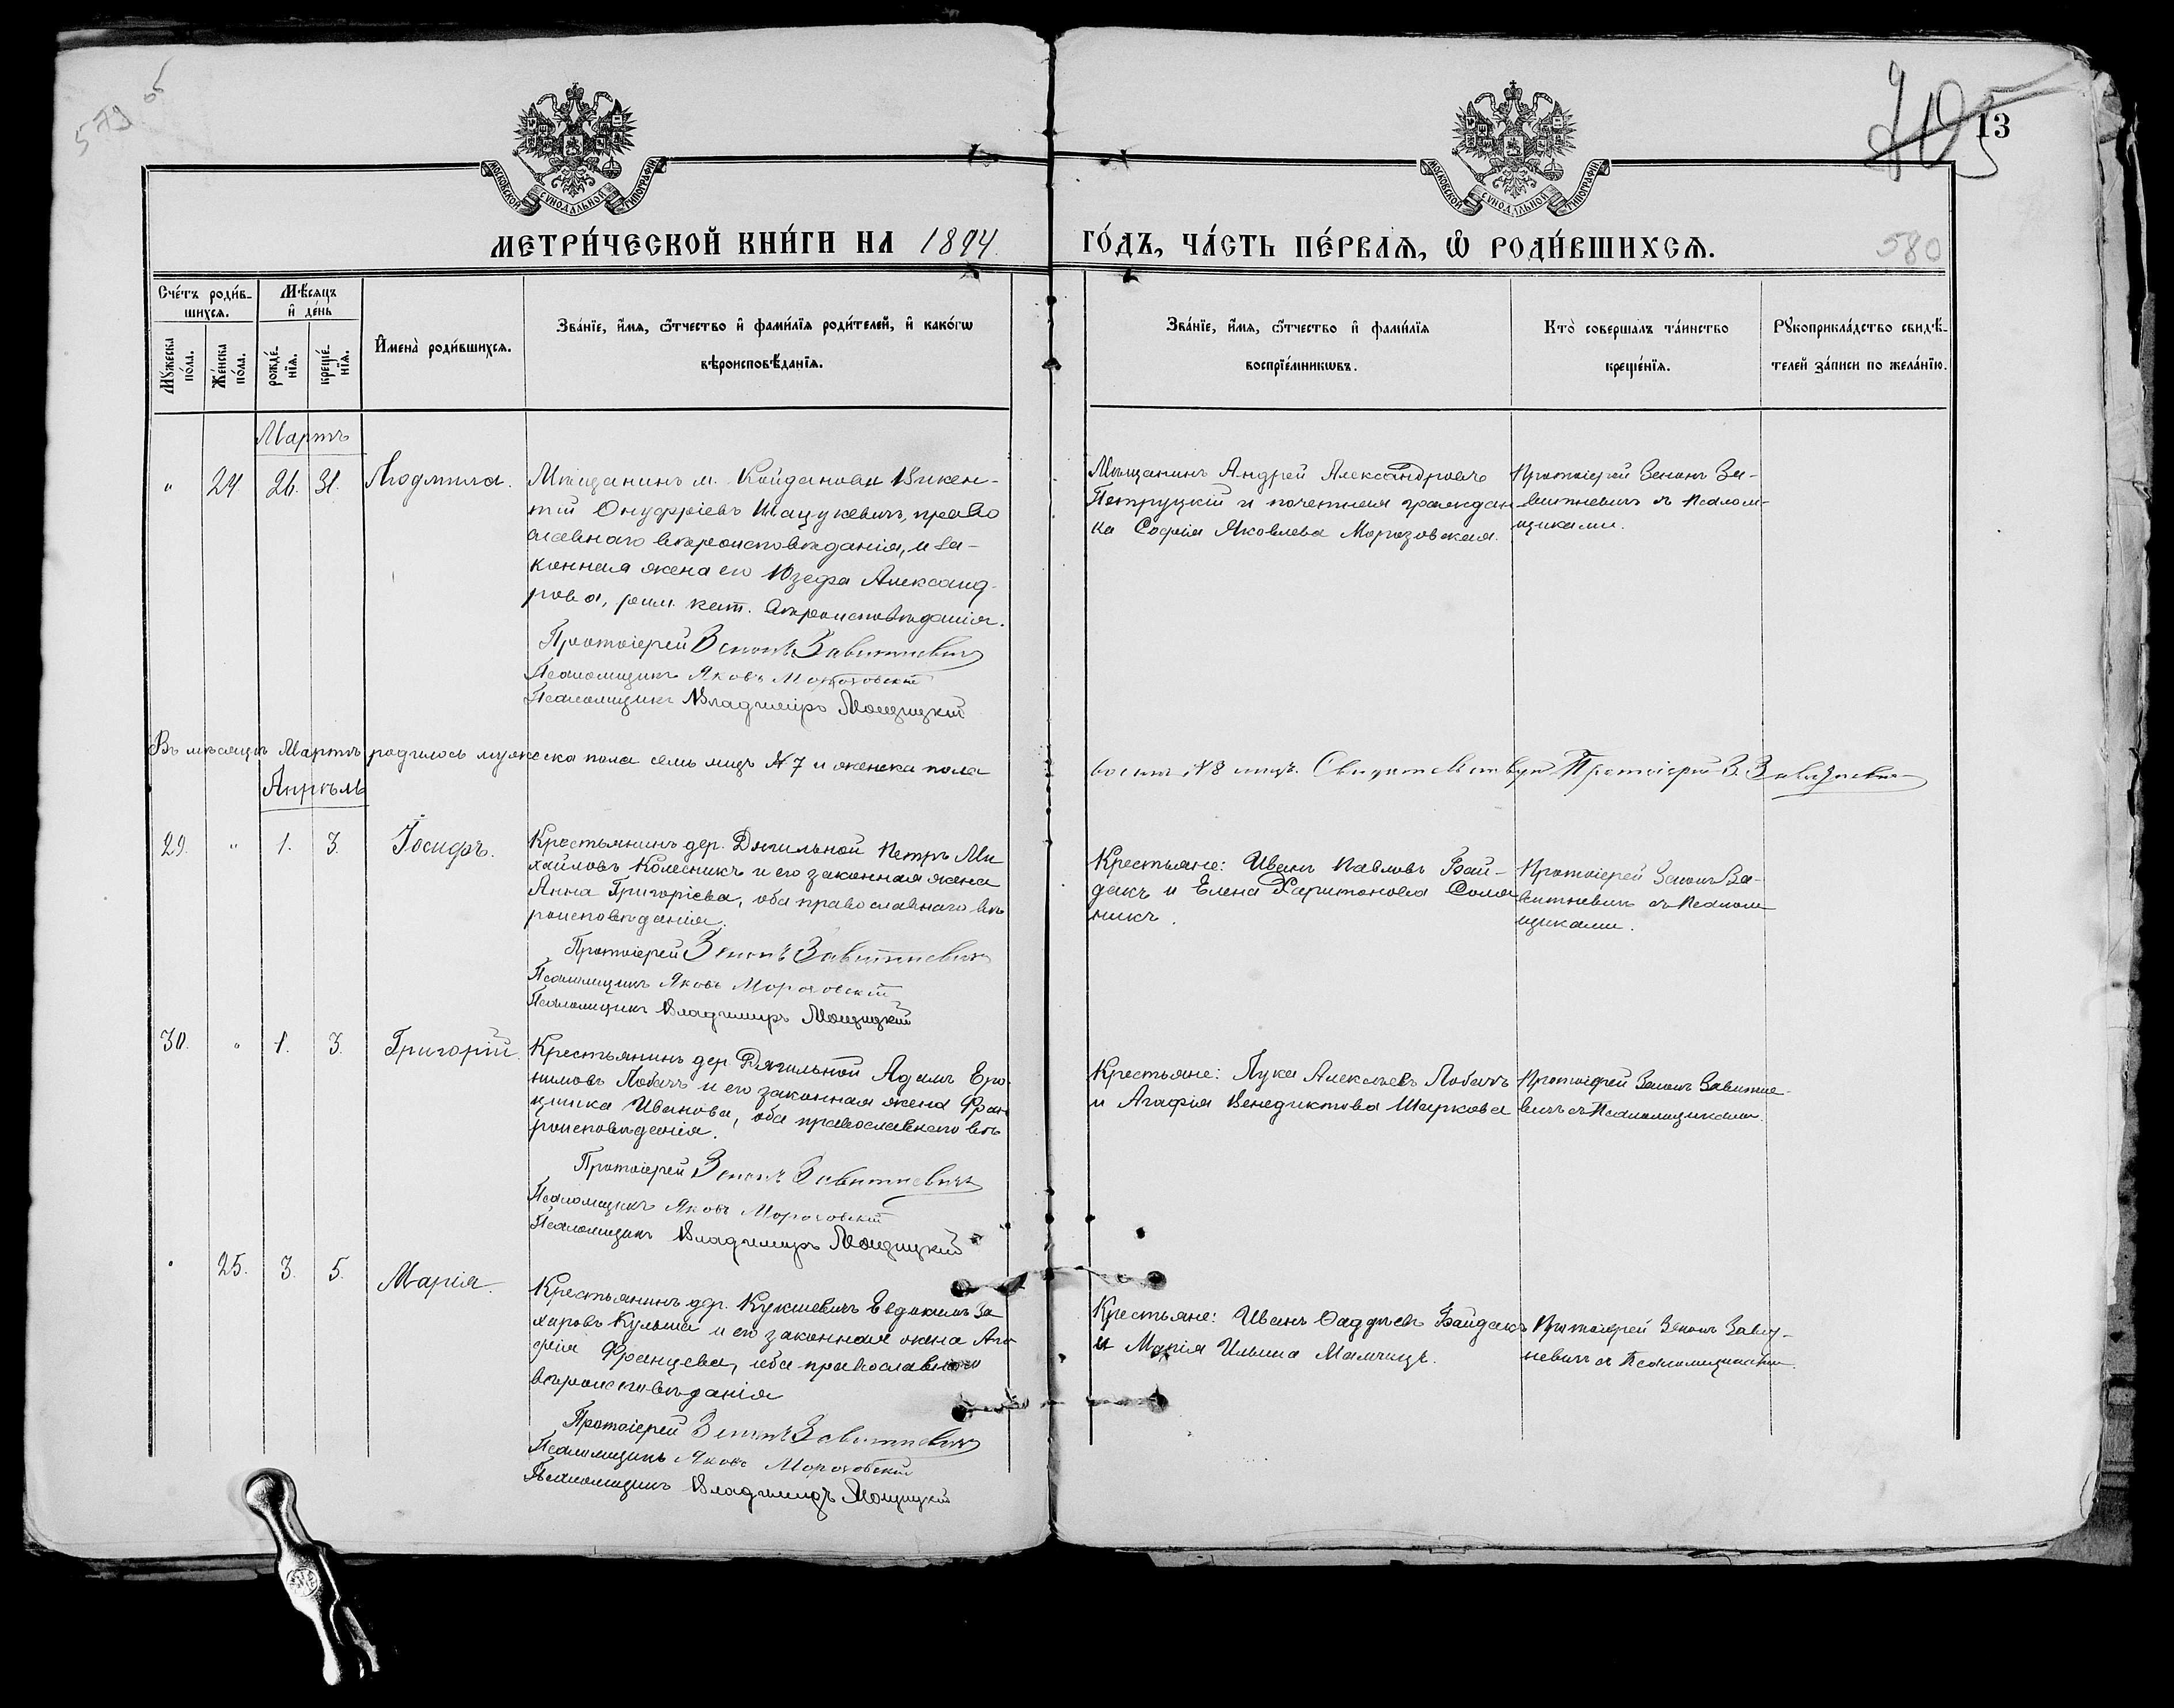 579 об
405
13
580
МОСКОВСКОЙ СѴНОДАЛЬНОЙ ТИПОГРАФІИ
МОСКОВСКОЙ СѴНОДАЛЬНОЙ ТИПОГРАФІИ
МЕТРИ́ЧЕСКОЙ КНИ́ГИ НА 1894
ГО́ДЪ, ЧА́СТЬ ПЕ́РВАѦ, Ѡ҆ РОДИ́ВШИХСѦ.
Сче́тъ роди́в-
шихсѧ.
Мѣ́сѧцъ
и҆ де́нь
И҆мена̀ роди́вшихсѧ.
Зва́нїе, и҆́мѧ, ѻ҆́тчество и҆ фами́лїѧ роди́телей, и҆ како́гѡ
вѣроисповѣ́данїѧ.
Мꙋ́жеска
по́ла.
Же́нска
по́ла.
рожде́-
нїѧ.
креще́-
нїѧ.
Зва́нїе, и҆́мѧ, ѻ҆́тчество и҆ фами́лїѧ
воспрїе́мникѡвъ.
Кто̀ соверша́лъ та́инство
креще́нїѧ.
Рꙋкоприкла́дство свидѣ́-
телей за́писи по жела́нїю.
Мартъ
" 24. 26. 31. Людмила.
Мѣщанинъ м. Койданова Викен-
тій Онуфріевъ Шацукевичъ, право
славнаго вѣроисповѣданія, и за-
конная жена его Юзефа Александ-
рова, рим. кат. вѣроисповѣданія.
Протоіерей Зенонъ Завитневичъ
Псаломщикъ Яковъ Мороховскій
Псаломщикъ Владиміръ Мощицкій
Мѣщанинъ Андрей Александровъ
Петруцкій и почетная граждан
ка Софія Яковлева Морозовская.
Протоіерей Зенонъ За-
витневичъ съ псалом-
щиками.
Въ мѣсяцѣ Мартѣ родилось мужеска пола семь лицъ № 7 и женска пола
восемь № 8 лицъ. Свидѣтельствую Протоіерей З. Завитневичъ
Апрѣль
29. " 1. 3. Іосифъ.
Крестьянинъ дер. Дягильной Петръ Ми
хайловъ Колесникъ и его законная жена
Анна Григоріева, оба православнаго вѣ
роисповѣданія.
Протоіерей Зенонъ Завитневичъ
Псаломщикъ Яковъ Мороховскій
Псаломщикъ Владиміръ Мощицкій
Крестьяне: Иванъ Павловъ Бай-
дакъ и Елена Харитонова
никъ.
Протоіерей Зенонъ За-
витневичъ съ псалом
щиками.
30. " 1. 3. Григорій.
Крестьянинъ дер. Дягильной Адамъ Еро
нимовъ Лобачъ и его законная жена Фран
цишка Иванова, оба православнаго вѣ
роисповѣданія.
Протоіерей Зенонъ Завитневичъ
Псаломщикъ Яковъ Мороховскій
Псаломщикъ Владиміръ Мощицкій
Крестьяне: Лука Алексѣевъ Лобачъ
и Агафія Венедиктова Шаркова
Протоіерей Зенонъ Завитне-
вичъ съ Псаломщиками.
" 25. 3. 5. Марія.
Крестьянинъ дер. Кукшевичъ Евдокимъ За
харовъ Кульша и его законная жена Ага
фія Францева, оба православнаго
вѣроисповѣданія
Протоіерей Зенонъ Завитневичъ
Псаломщикъ Яковъ Мороховскій
Псаломщикъ Владиміръ Мощицкій
Крестьяне: Иванъ Ѳаддеевъ Байдакъ
и Марія Ильина
Протоіерей Зенонъ Завит-
невичъ съ Псаломщиками.